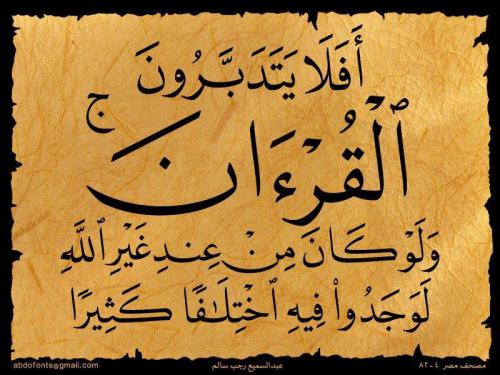 أَفَلَا يَتَدَبَّرُونَ
ٱلْقُرْءَانَ ۚ
وَلَوْ كَانَ مِنْ عِندِ غَيْرِ ٱللَّهِ
لَوَجَدُوا۟ فِيهِ ٱخْتِلَـٰفًا كَثِيرًا
مصحف مصر ٤-٨٢
عبدالسميع رجب سالم
abdofonts@gmail.com